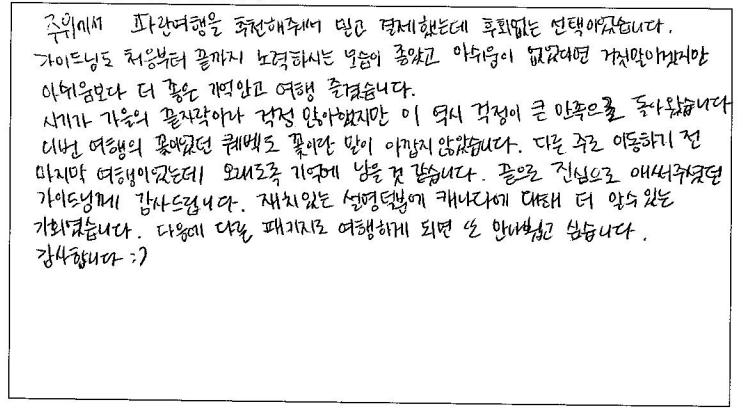 주위에서 파란여행을 추천해줘서 믿고 결제했는데 후회없는 선택이었습니다.
가이드님도 처음부터 끝까지 노력하시는 모습이 좋았고 아쉬움이 없었다면 거짓말이겠지만
아쉬움보다 더 좋은 기억안고 여행 즐겼습니다.
시기가 가을의 끝자락이라 걱정 많이했지만 이 역시 걱정이 큰 만족으로 돌아왔습니다
이번 여행의 꽃이었던 퀘벡도 꽃이란 말이 아깝지 않았습니다. 다른 주로 이동하기 전
마지막 여행이었는데 오래도록 기억에 남을 것 같습니다. 끝으로 진심으로 애써주셨던
가이드님께 감사드립니다. 재치있는 설명덕분에 캐나다에 대해 더 알수있는
기회였습니다. 다음에 다른 패키지로 여행하게 되면 또 만나뵙고 싶습니다.
감사합니다 :)